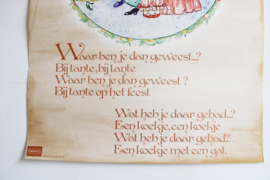 Waar ben je dan geweest..?
Bij tante, bij tante
Waar ben je dan geweest?
Bij tante op het feest.
Wat heb je daar gehad...?
Een koekje, een koekje
Wat heb je daar gehad?
Een koekje met een gat.